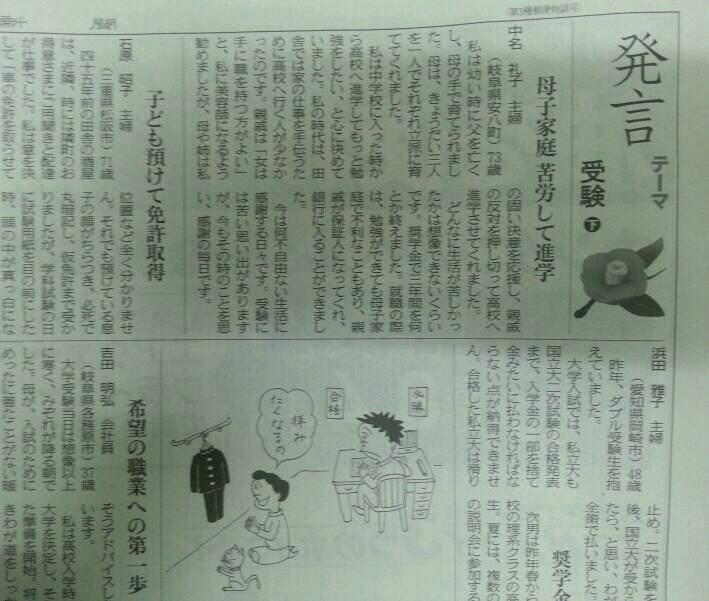 (第3種郵便物認可)
発言
テーマ
受験 下
母子家庭 苦労して進学
中名 礼子 主婦
(岐阜県安八町)73歳
私は幼い時に父を亡く
し、母の手で育てられまし
た。母は、きょうだい三人
を一人でそれぞれ立派に育
ててくれました。
私は中学校に入った時か
ら高校へ進学してもっと勉
強をしたい、と心に決めて
いました。私の時代は、田
舎では家の仕事を手伝うた
めに高校へ行く人が少なか
ったのです。親戚は「女は
手に職を持つ方がよい」
と、私に美容師になるよう
勧めましたが、母や姉は私
の固い決意を応援し、親戚
の反対を押し切って高校へ
進学させてくれました。
どんなに生活が苦しかっ
たかは想像できないくらい
です。奨学金で三年間を何
とか終えました。就職の際
は、勉強ができても母子家
庭で不利なこともあり、親
戚が保証人になってくれ、
銀行に入ることができまし
た。
今は何不自由ない生活に
感謝する日々です。受験に
は苦い思い出があります
が、今もその時のことを思
い、感謝の毎日です。
子ども預けて免許取得
石原 昭子 主婦
(三重県松阪市)71歳
四十五年前の田舎の酒屋
は、近隣、時には隣町のお
得意さまにご用聞きと配達
が仕事でした。私は意を決
して「車の免許を取らせて
位置など全く分かりませ
ん。それでも預けている息
子の顔がちらつき、必死で
丸暗記し、仮免許まで受か
りましたが、学科試験の日
に試験用紙を目の前にした
時、頭の中が真っ白にな
浜田 雅子 主婦
(愛知県岡崎市)48歳
昨年、ダブル受験生を抱
えていました。
大学入試では、私立大も
国立大二次試験の合格発表
まで、入学金の一部を捨て
金みたいに払わなければな
らない点が納得できませ
ん。合格した私立大は滑り
止め。二次試験を
後、国立大が受から
たら、と思い、わが
全策で払いました。
次男は昨年春から
校の理系クラスの高
生。夏には、複数の
の説明会に参加する
奨学金
必勝
合格
拝み
たくなるの
希望の職業への第一歩
吉田 明弘 会社員
(岐阜県各務原市)37歳
大学受験当日は想像以上
に寒く、みぞれが降る朝で
した。母が、入試のために
めったに着たことがない暖
そうアドバイスし
います。
私は高校入学時
大学を決定し、そ
た準備を開始。将
きわが道をしっか